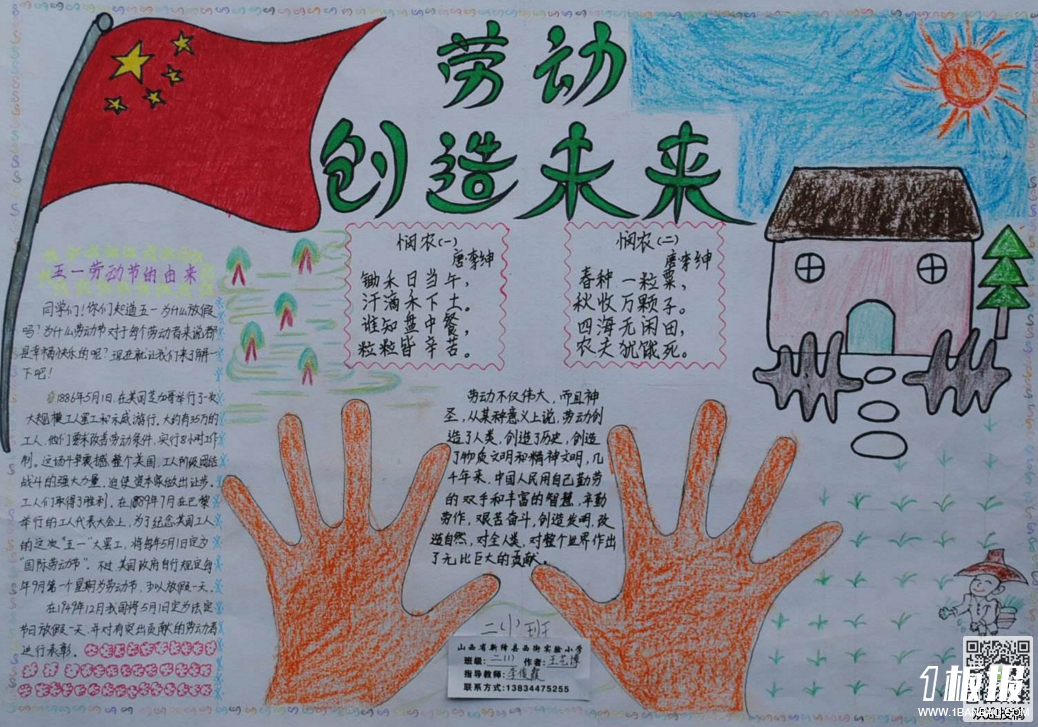 劳动
创造未来
五一劳动节的由来
同学们!你们知道五一为什么放假
吗?为什么劳动节对于每个劳动者来说都
是幸福快乐的呢?现在就让我们来了解一
下吧!
1886年5月1日,在美国芝加哥举行了一次
大规模工人罢工和示威游行,大约有35万的
工人,他们要求改善劳动条件,实行8小时工作
制。这场斗争震撼整个美国,工人阶级团结
战斗的强大力量,迫使资本家做出让步。
工人们取得了胜利。在1889年7月在巴黎
举行的工人代表大会上,为了纪念美国工人
的这次“五一”大罢工,将每年5月1日定为
“国际劳动节”。不过,美国政府自行规定每
年9月第一个星期为劳动节,予以放假一天。
在1949年12月我国将5月1日定为法定
节日放假一天,并对有突出贡献的劳动者
进行表彰。
悯农(一)
唐·李绅
锄禾日当午,
汗滴禾下土。
谁知盘中餐,
粒粒皆辛苦。
悯农(二)
唐·李绅
春种一粒粟,
秋收万颗子。
四海无闲田,
农夫犹饿死。
劳动不仅伟大,而且神
圣,从某种意义上说,劳动创
造了人类,创造了历史,创造
了物质文明和精神文明,几
千年来,中国人民用自己勤劳
的双手和丰富的智慧,辛勤
劳作,艰苦奋斗,创造发明,改
造自然,对全人类,对整个世界作出
了无比巨大的贡献。
二(1)班
山西省新绛县西街实验小学
班级:二(1) 作者:王艺博
指导教师:李俊霞
联系方式:13834475255
1板报
WWW.1BANBAO.COM
欢迎投稿